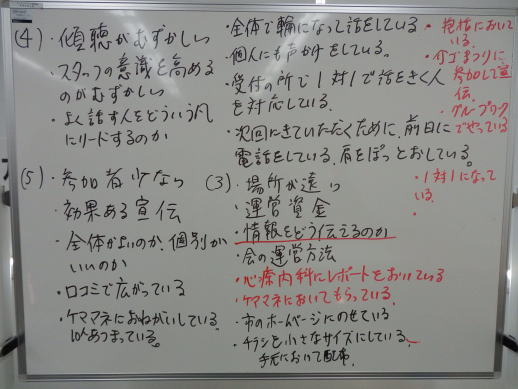 (4)・傾聴がむずかしい
・スタッフの意識を高める
のがむずかしい
・よく話す人をどういう風
にリードするのか
・全体で輪になって話をしている
・個人にも声かけをしている。
・受付の所で1対1で話をきく人
を対応している。
・次回にきていただくために、前日に
電話をしている、肩をぽっとおしている。
・包括において
いる。
・イチゴまつりに
参加して宣
伝。
・グループワーク
でやっている
・1対1になって
いる。
(5)・参加者少ない
・効果ある宣伝
・全体がよいのか、個別が
いいのか
・口コミで広がっている
・ケアマネにおねがいしている。
10人あつまっている。
(3)・場所が遠い
・運営資金
・情報をどう伝えるのか
・会の運営方法
・心療内科にレポートをおいている
・ケアマネにおいてもらっている。
・市のホームページにのせている
・チラシを小さなサイズにしている。
手元において配布。